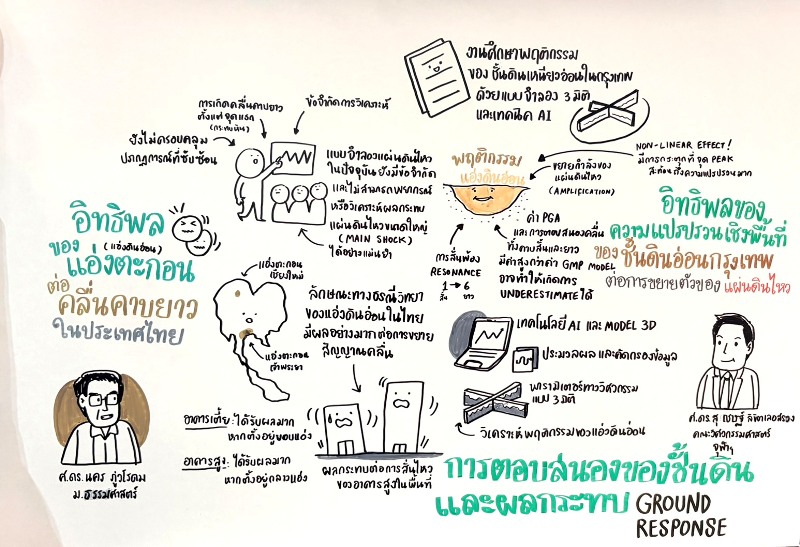 อิทธิพล
ของ (แอ่งดินอ่อน)
แอ่งตะกอน
ต่อ
คลื่นคาบยาว
ในประเทศไทย
ศ.ดร.นคร ภู่วโรดม
ม.ธรรมศาสตร์
ยังไม่ครอบคลุม
ปรากฏการณ์ที่ซับซ้อน
การเกิดคลื่นคาบยาว
ตั้งแต่จุดแรก
ข้อจำกัดการวิเคราะห์
แบบจำลองแผ่นดินไหว
ในปัจจุบันยังมีข้อจำกัด
และไม่สามารถพยากรณ์
หรือวิเคราะห์ผลกระทบ
แผ่นดินไหวขนาดใหญ่
(MAIN SHOCK)
ได้อย่างแม่นยำ
แอ่งตะกอน
เชียงใหม่
แอ่งตะกอน
เจ้าพระยา
ลักษณะทางธรณีวิทยา
ของแอ่งดินอ่อนในไทย
มีผลอย่างมากต่อการขยาย
สัญญาณคลื่น
อาคารเตี้ย: ได้รับผลมาก
หากตั้งอยู่ขอบแอ่ง
อาคารสูง: ได้รับผลมาก
หากตั้งอยู่กลางแอ่ง
ผลกระทบต่อการสั่นไหว
ของอาคารสูงในพื้นที่
งานศึกษาพฤติกรรม
ของ ชั้นดินเหนียวอ่อนในกรุงเทพ
ด้วยแบบจำลอง 3 มิติ
และเทคนิค AI
พฤติกรรม
แอ่งดินอ่อน
NON-LINEAR EFFECT!
มีการกระตุกที่จุด PEAK
สะท้อนถึงความแปรปรวนมาก
ขยายกำลังของ
แผ่นดินไหว
(AMPLIFICATION)
การสั่นพ้อง
RESONANCE
1 → 6
สั้น ยาว
ค่า PGA
และการตอบสนองคลื่น
ทั้งคาบสั้นและยาว
มีค่าสูงกว่าค่า GMP MODEL
อาจทำให้เกิดการ
UNDERESTIMATE ได้
อิทธิพลของ
ความแปรปรวนเชิงพื้นที่
ของ ชั้นดินอ่อนกรุงเทพ
ต่อการขยายตัวของ แผ่นดินไหว
เทคโนโลยี AI และ MODEL 3D
ประมวลผล และคัดกรองข้อมูล
พารามิเตอร์ทางวิศวกรรม
แบบ 3 มิติ
วิเคราะห์พฤติกรรมของแอ่งดินอ่อน
คณะวิศวกรรมศาสตร์
จุฬาฯ
การตอบสนองของชั้นดิน
และผลกระทบ GROUND
RESPONSE